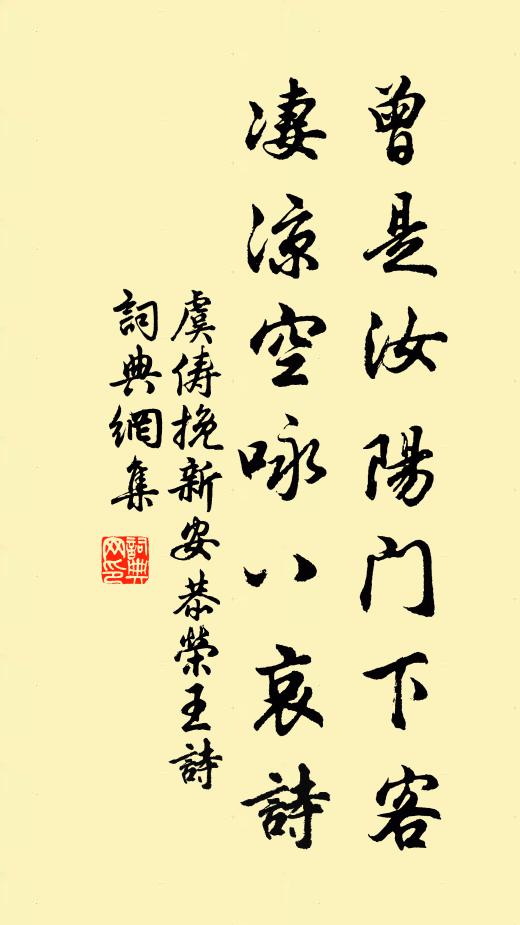 曾是汝陽門下客
凄涼空咏八哀詩
虞儔挽新安恭榮王詩
詞典網集
詞典網印